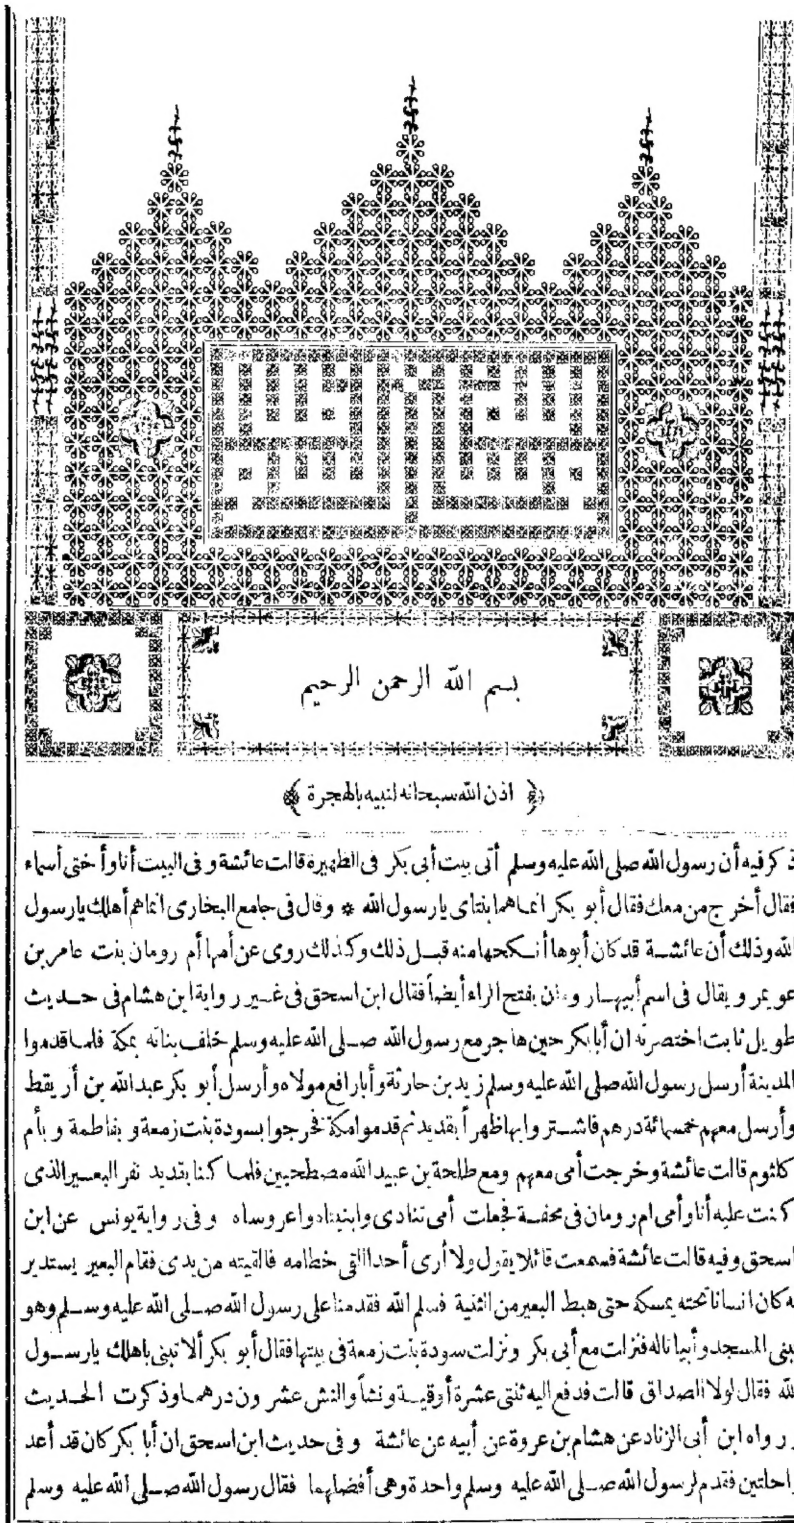 بسم الله الرحمن الرحيم
﴿ اذن الله سبحانه لنبيه بالهجرة ﴾
ذكر فيه أن رسول الله صلى الله عليه وسلم أتى بيت أبي بكر في الظهيرة قالت عائشة وفي البيت أنا وأختى أسماء
فقال أخرج من معك فقال أبو بكر انما هما بنتاى يارسول الله * وقال في جامع البخارى انما هم أهلك يارسول
الله وذلك أن عائشة قد كان أبوها أنكحها منه قبل ذلك وكذلك روى عن أمها أم رومان بنت عامر بن
عويمر ويقال في اسم أبيها رومان بفتح الراء أيضاً فقال ابن اسحق في غير رواية ابن هشام في حديث
طويل ثابت اختصرته ان أبا بكر حين هاجر مع رسول الله صلى الله عليه وسلم خلف بناته بمكة فلما قدموا
المدينة أرسل رسول الله صلى الله عليه وسلم زيد بن حارثة وأبا رافع مولاه وأرسل أبو بكر عبد الله بن أريقط
وأرسل معهم خمسمائة درهم فاشتروا بها ظهراً بقديد ثم قدموا مكة فخرجوا بسودة بنت زمعة وبفاطمة وبأم
كلثوم قالت عائشة وخرجت أمى معهم ومع طلحة بن عبيد الله مصطحبين فلما كنا بقديد نفر البعير الذى
كنت عليه أنا وأمى ام رومان في محفة فجعلت أمى تنادى وابنيتاه واعروساه وفي رواية يونس عن ابن
اسحق وفيه قالت عائشة فسمعت قائلا يقول ولا أرى أحدا القى خطامه فالقيته من يدى فقام البعير يستدير
به كان انسانا تحته يمسكه حتى هبط البعير من الثنية فسلم الله فقدمنا على رسول الله صلى الله عليه وسلم وهو
يبنى المسجد وأبيانا له فنزلت مع أبي بكر ونزلت سودة بنت زمعة في بيتها فقال أبو بكر ألا تبنى باهلك يارسول
الله فقال لولا الصداق قالت فدفع اليه ثنتى عشرة أوقية ونشاً والنش عشرون درهما وذكرت الحديث
ورواه ابن أبي الزناد عن هشام بن عروة عن أبيه عن عائشة وفي حديث ابن اسحق ان أبا بكر كان قد أعد
راحلتين فقدم لرسول الله صلى الله عليه وسلم واحدة وهى أفضلهما فقال رسول الله صلى الله عليه وسلم